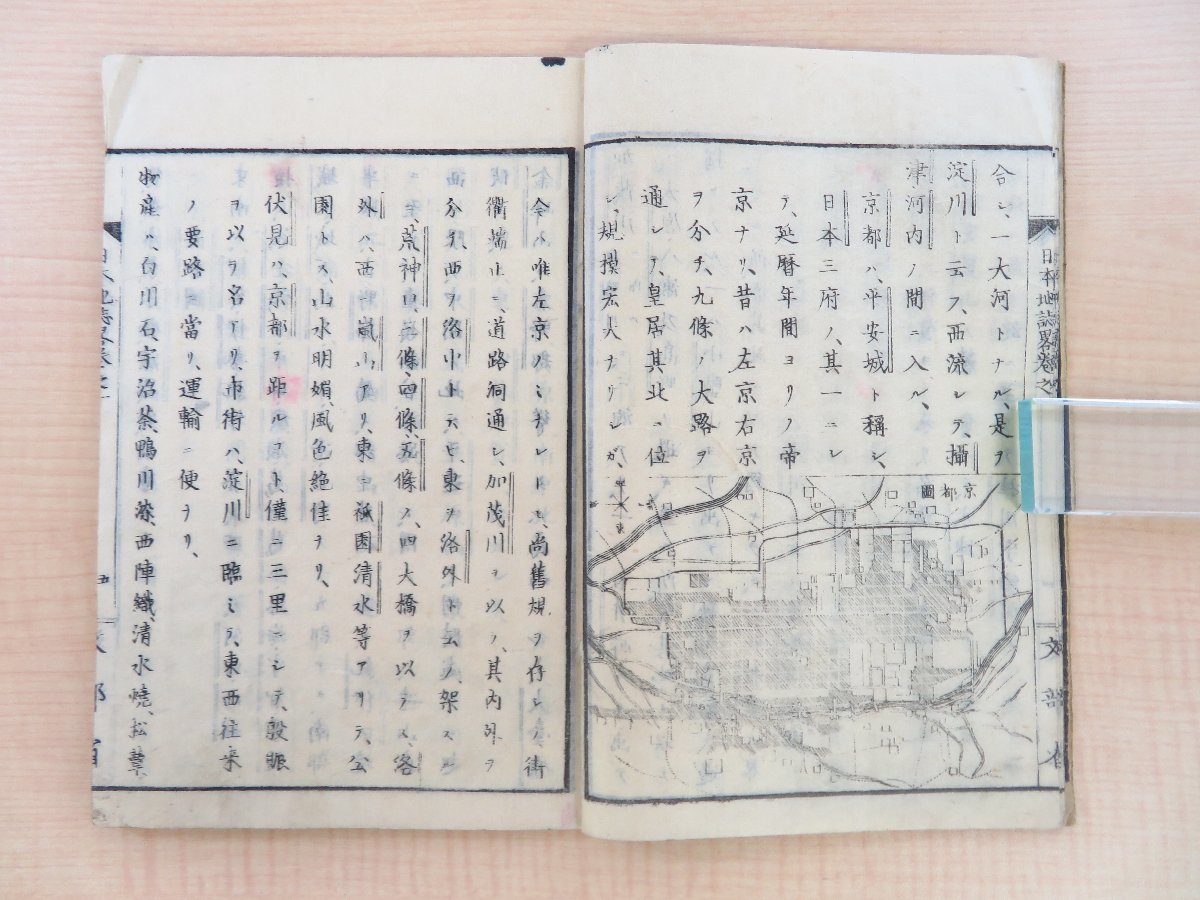 合シ、一大河トナル、是ヲ
淀川ト云フ、西流シテ、攝
津河内ノ間ニ入ル、
京都ハ、平安城ト稱シ、
日本三府ノ、其一ニシ
テ、延暦年間ヨリノ帝
京ナリ、昔ハ左京右京
ヲ分チ、九條ノ大路ヲ
通シテ、皇居其北ニ位
シ、規模宏大ナリシガ、
京都圖
日本地誌畧卷之一
文部省
今ハ唯左京ノミナレドモ、尚舊規ヲ存シテ、街
衢端正、道路洞通シ、加茂川ヲ以テ、其内外ヲ
分チ、西ヲ洛中トシ、東ヲ洛外ト云フ、架スル
ニ、荒神口、三條、四條、五條ノ、四大橋ヲ以テス、洛
外ハ、西ニ嵐山アリ、東ニ祇園清水等アリテ、公
園トス、山水明媚、風色絶佳ナリ、
伏見ハ、京都ヲ距ルコト、僅ニ三里ニシテ、殷賑
ヲ以テ名アリ、市街ハ、淀川ニ臨ミテ、東西往来
ノ要路ニ當リ、運輸ニ便ナリ、
物産ハ、白川石、宇治茶、鴨川染、西陣織、清水燒、松蕈
日本地誌畧卷之一
五
文部省